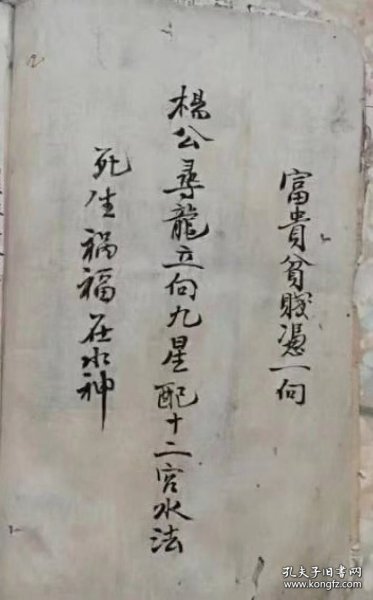 富貴貧賤憑一向
楊公尋龍立向九星配十二宮水法
死生禍福在水神
孔夫子旧书网
www.kongfz.com